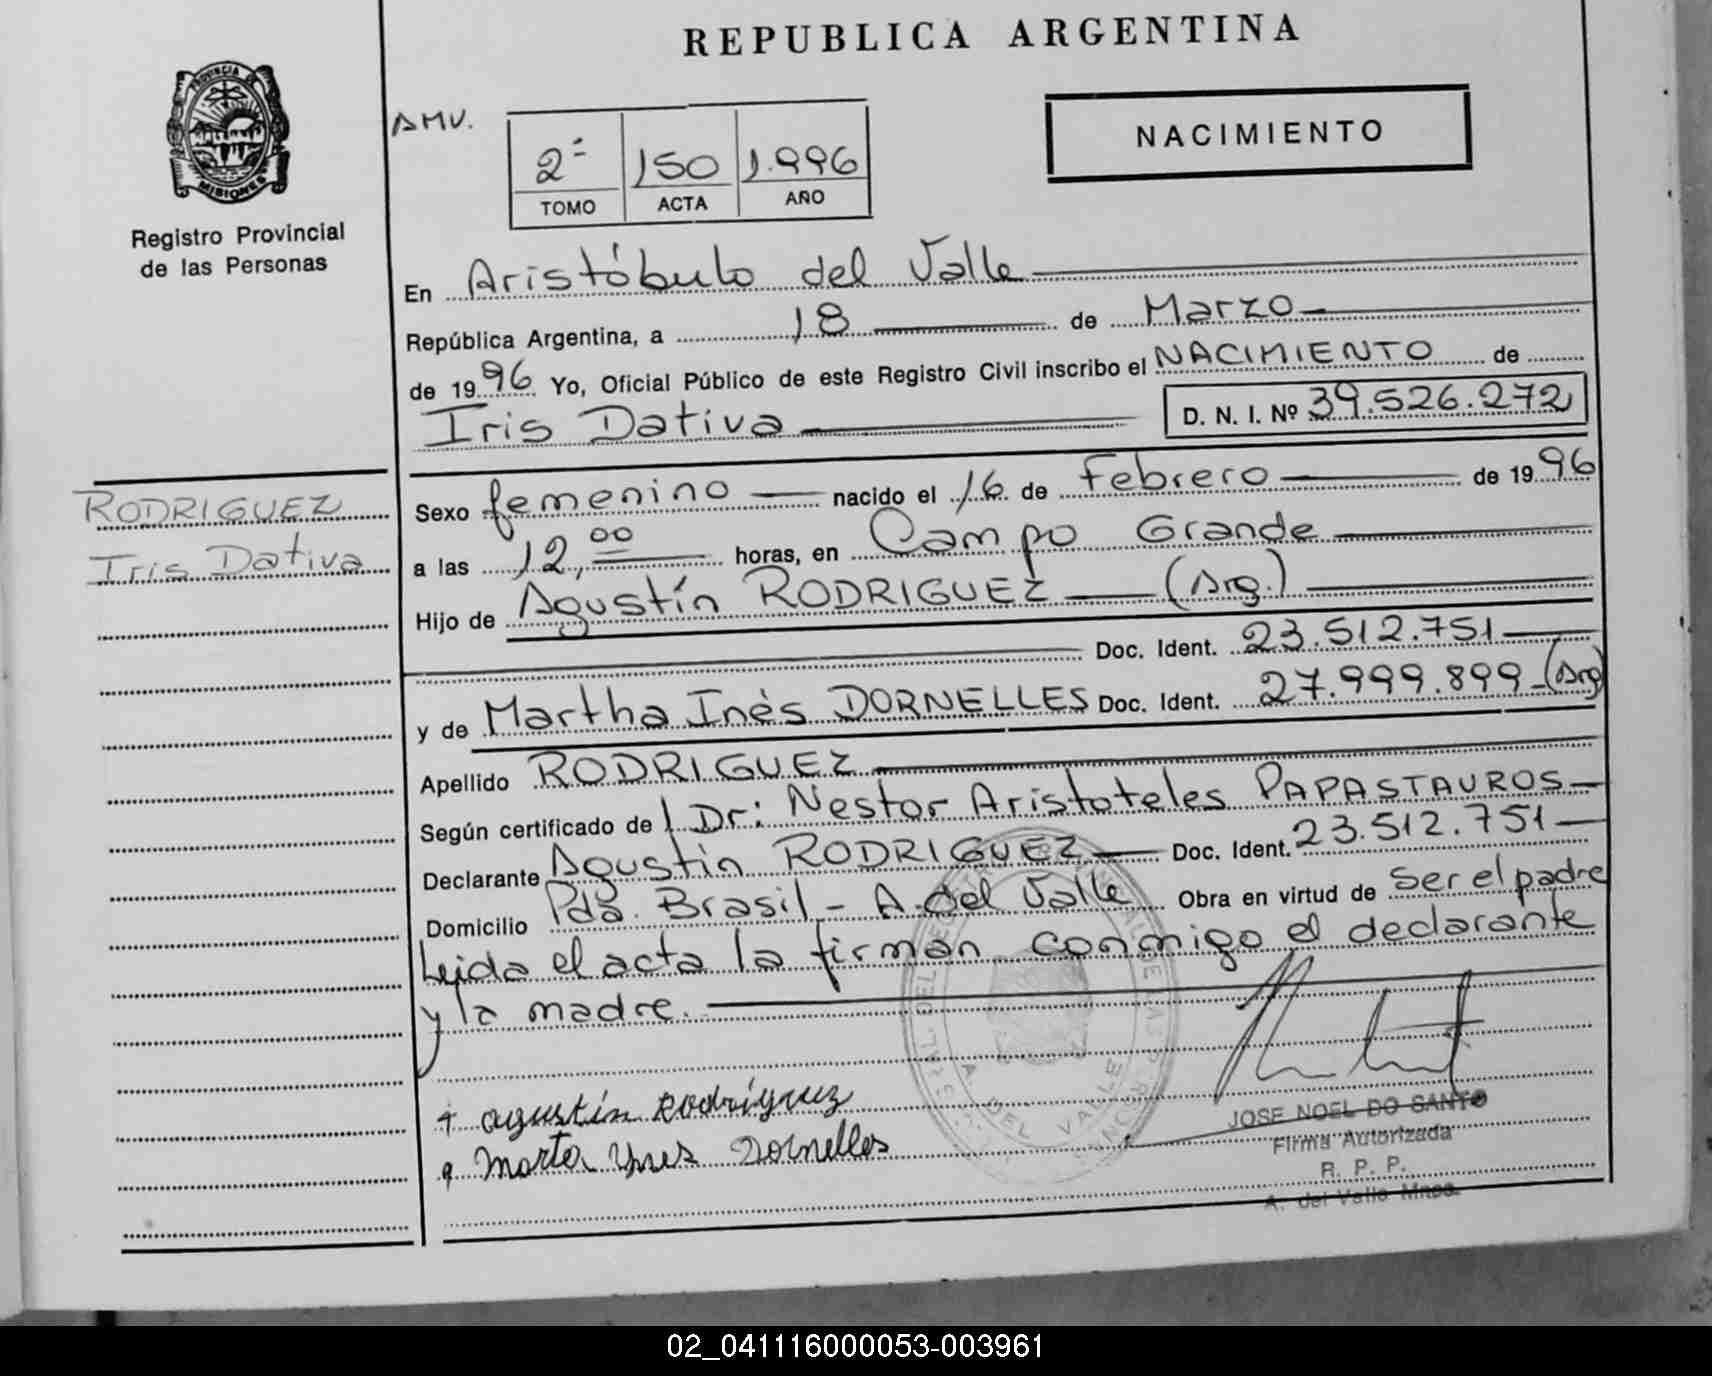 REPUBLICA ARGENTINA
PROVINCIA DE
MISIONES
Registro Provincial
de las Personas
AMV.
2º 150 1.996
TOMO ACTA AÑO
NACIMIENTO
En Aristóbulo del Valle
República Argentina, a 18 de Marzo
de 1996 Yo, Oficial Público de este Registro Civil inscribo el NACIMIENTO de
Iris Dativa D. N. I. Nº 39.526.272
RODRIGUEZ
Iris Dativa
Sexo femenino nacido el 16 de Febrero de 1996
a las 12,00 horas, en Campo Grande
Hijo de Agustín RODRIGUEZ (Arg.)
Doc. Ident. 23.512.751
y de Martha Inés DORNELLES Doc. Ident. 27.999.899 (Arg)
Apellido RODRIGUEZ
Según certificado de Dr: Nestor Aristoteles PAPASTAUROS
Declarante Agustín RODRIGUEZ Doc. Ident. 23.512.751
Domicilio Pda. Brasil - A. del Valle Obra en virtud de Ser el padre
Leida el acta la firman conmigo el declarante
y la madre.
Agustín Rodríguez
Marta Ynes Dornelles
A. DEL VALLE
JOSE NOEL DO SANTO
Firma Autorizada
R. P. P.
A. del Valle Mnes.
02_041116000053-003961